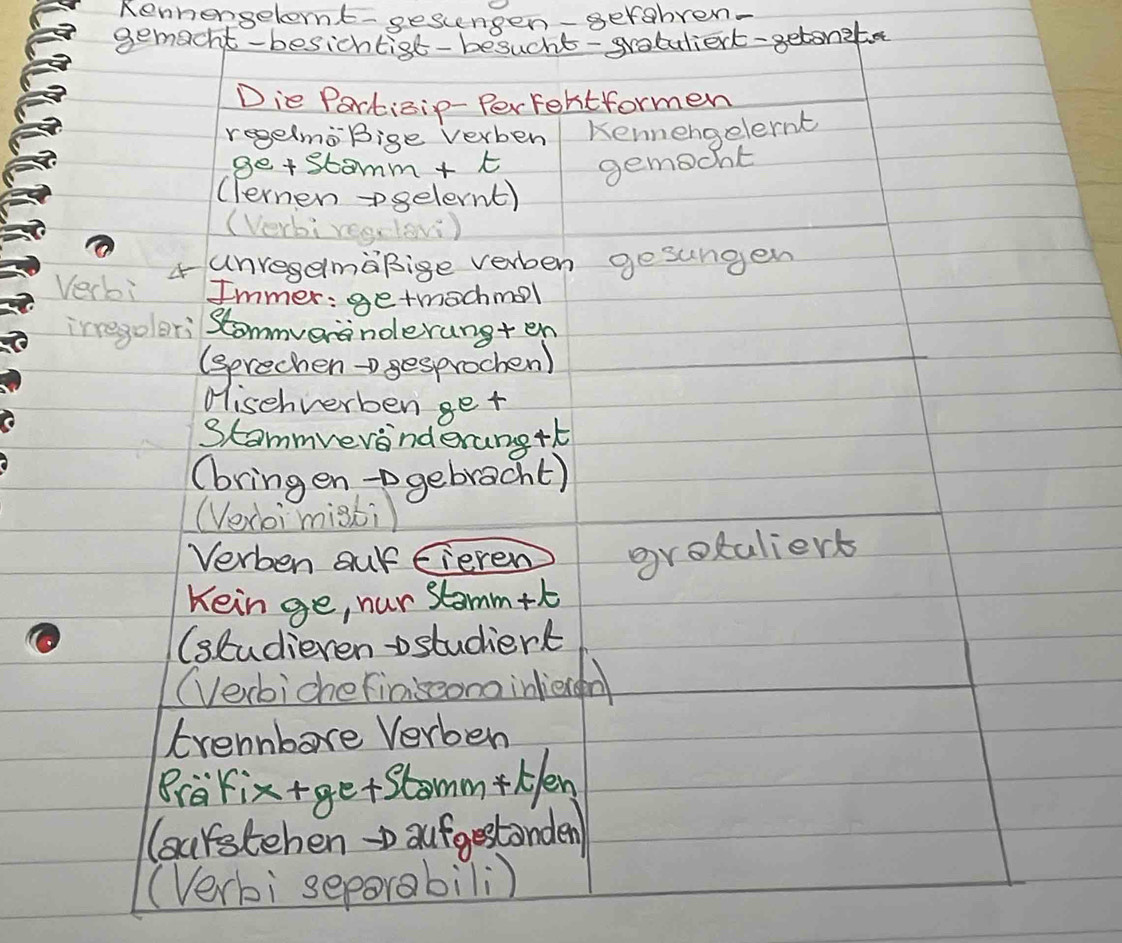 Kennengelernt - gesungen - gefahren -
gemacht - besichtigt - besucht - gratuliert - getanzt
Die Partizip-Perfektformen
regelmäßige Verben
Kennengelernt
ge + Stamm + t
gemacht
(lernen → gelernt)
(Verbi regolari)
unregelmäßige verben
gesungen
Verbi
irregolari
Immer: ge + machmal
Stammveränderung + en
(sprechen → gesprochen)
Mischverben ge +
Stammveränderung + t
(bringen → gebracht)
(Verbi misti)
Verben auf -ieren
gratuliert
Kein ge, nur Stamm + t
(studieren → studiert
(Verbi che finiscono in ieren)
trennbare Verben
Präfix + ge + Stamm + t/en
(aufstehen → aufgestanden)
(Verbi separabili)